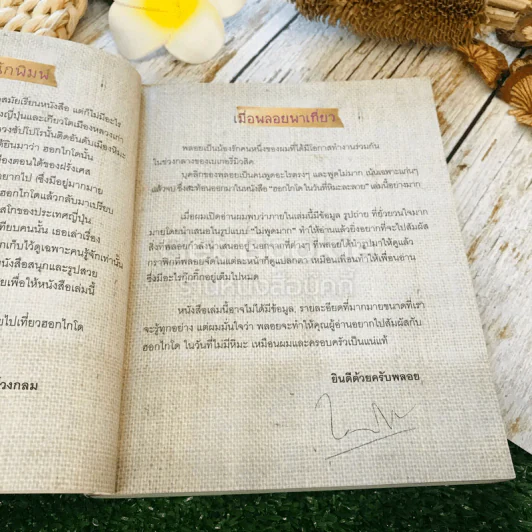 สมัยเรียนหนังสือ แต่ก็ไม่มีอะไร
ของฝรั่งเศส
ยากไป ซึ่งมีอยู่มากมาย
ฮอกไกโดแล้วกลับมาเปรียบ
ของประเทศญี่ปุ่น
คนนั้น เธอเล่าเรื่อง
เก็บไว้ดูเฉพาะคนรู้จักเท่านั้น
หนังสือสนุกและรูปสวย
เพื่อให้หนังสือเล่มนี้
ไปเที่ยวฮอกไกโด
วงกลม
เมื่อพลอยพาเที่ยว
พลอยเป็นน้องรักคนหนึ่งของผมที่ได้มีโอกาสทำงานร่วมกัน
ในช่วงกลางของเบเกอรี่มิวสิค
บุคลิกของพลอยเป็นคนพูดอะไรตรงๆ และพูดไม่มาก เน้นเฉพาะแก่นๆ
แล้วจบ ซึ่งสะท้อนออกมาในหนังสือ "ฮอกไกโด ในวันที่หิมะละลาย" เล่มนี้อย่างมาก
เมื่อผมเปิดอ่านผมพบว่าภายในเล่มนี้มีข้อมูล รูปถ่าย ที่ยั่วยวนใจมาก
มายโดยนำเสนอในรูปแบบ "ไม่พูดมาก" ทำให้อ่านแล้วยิ่งอยากที่จะไปสัมผัส
สิ่งที่พลอยกำลังนำเสนออยู่ นอกจากที่ต่างๆ ที่พลอยได้นำรูปมาให้ดูแล้ว
กราฟิกที่พลอยจัดในแต่ละหน้าก็ดูแปลกตา เหมือนเพื่อนทำให้เพื่อนอ่าน
ซึ่งมีอะไรกุ๊กกิ๊กอยู่เต็มไปหมด
หนังสือเล่มนี้อาจไม่ได้มีข้อมูล, รายละเอียดที่มากมายขนาดที่เรา
จะรู้ทุกอย่าง แต่ผมมั่นใจว่า พลอยจะทำให้คุณผู้อ่านอยากไปสัมผัสกับ
ฮอกไกโด ในวันที่ไม่มีหิมะ เหมือนผมและครอบครัวเป็นแน่แท้
ยินดีด้วยครับพลอย